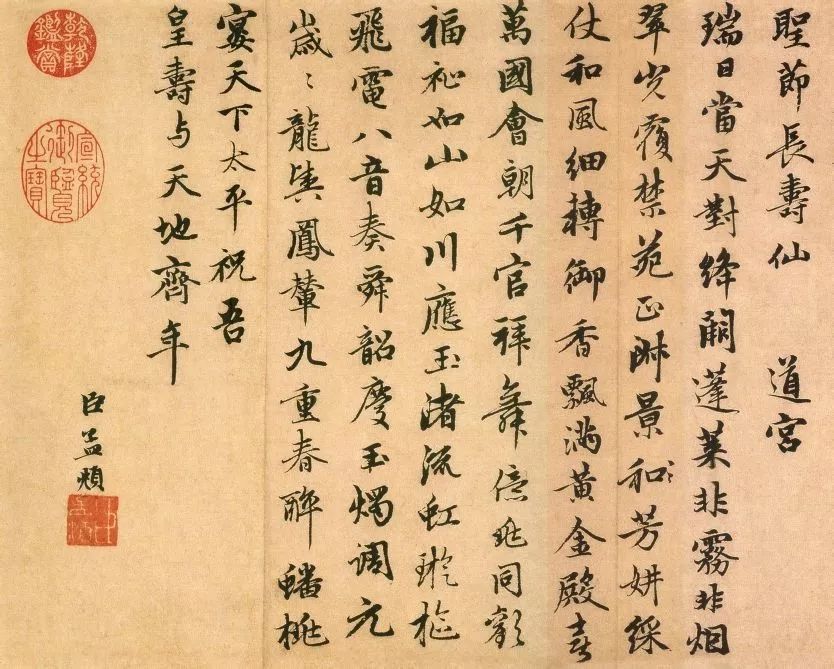 聖節長壽仙　道宮
瑞日當天對絳闕蓬萊非霧非烟
翠光覆禁苑正淋景和芳妍綵
仗和風細轉御香飄滿黃金殿喜
萬國會朝千官拜舞億兆同歡
福祉如山如川應玉渚流虹璇樞
飛電八音奏舜韶慶玉燭調元
歲〻龍輿鳳輦九重春醉蟠桃
宴天下太平祝吾
皇壽与天地齊年
臣孟頫
乾隆鑑賞
宣統御覽之寶